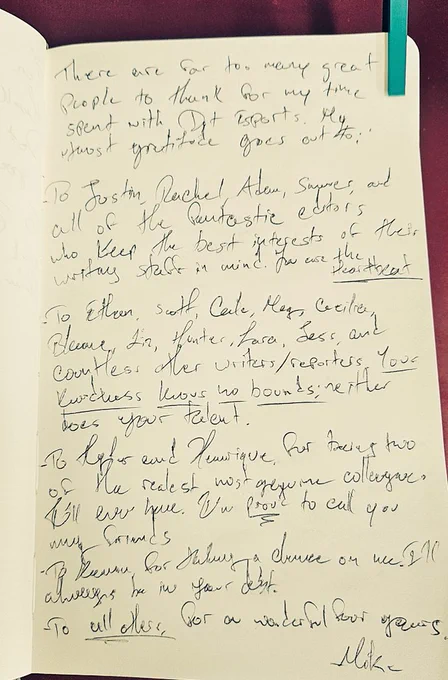 There are far too many great
people to thank for my time
spent with Dot Esports. My
utmost gratitude goes out to:
-To Justin, Rachel, Adam, and
all of the fantastic editors
who keep the best interests of their
writing staff in mind. You are the
heartbeat
-To Ethan, Scott, Cale, Meg, Cecilia,
Blaine, Liz, Hunter, Lara, Jess, and
countless other writers/reporters. Your
kindness knows no bounds; neither
does your talent.
-To Tyler and Henrique, for being two
of the realest most genuine colleagues
I'll ever have. I'm proud to call you
my friends
-To for taking a chance on me. I'll
always be in your debt.
-To all else, for a wonderful four years.
Mike